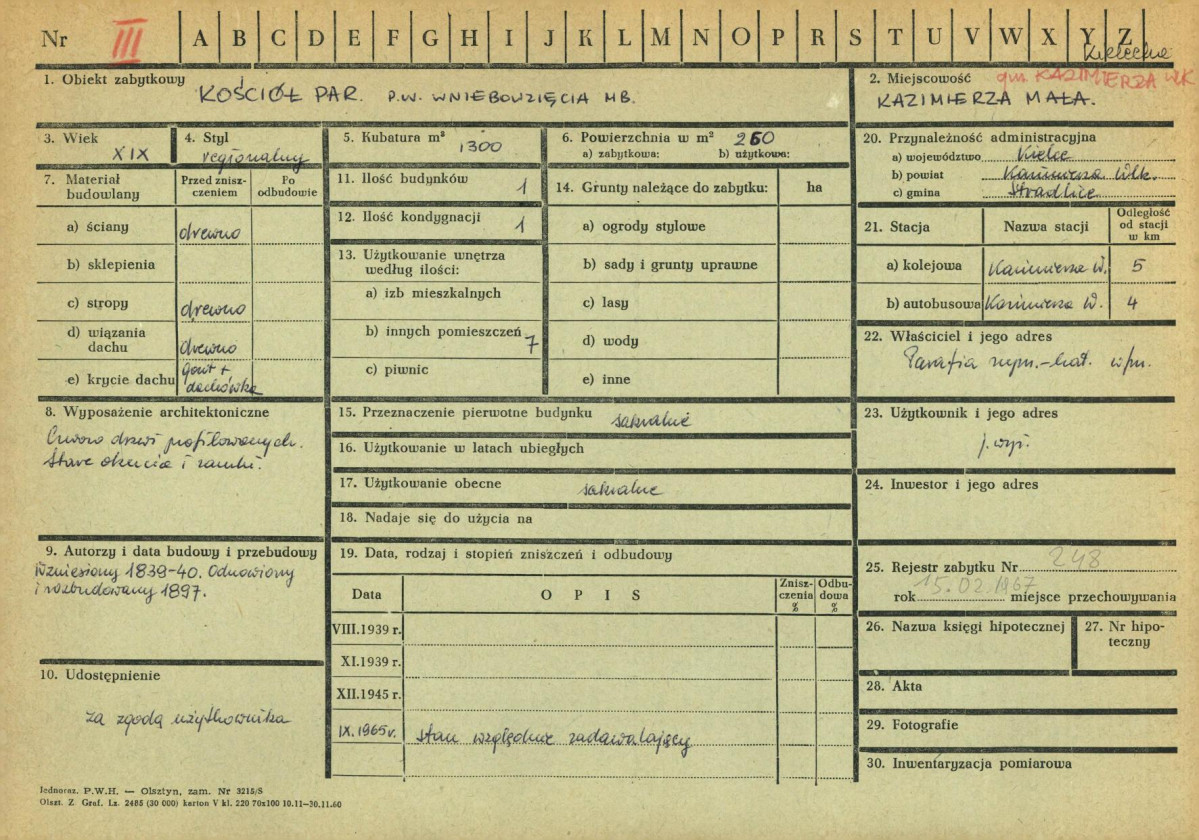 Nr III A B C D E F G H I J K L M N O P R S T U V W X Y Z
Kieleckie
1. Obiekt zabytkowy
KOŚCIÓŁ PAR. P.W. WNIEBOWZIĘCIA MB.
2. Miejscowość gm KAZIMIERZA WK
KAZIMIERZA MAŁA.
3. Wiek
XIX
4. Styl
regionalny
5. Kubatura m³
1300
6. Powierzchnia w m² 260
a) zabytkowa: b) użytkowa:
7. Materiał budowlany
Przed zniszczeniem
Po odbudowie
a) ściany drewno
b) sklepienia
c) stropy drewno
d) wiązania dachu drewno
e) krycie dachu gont + dachówka
8. Wyposażenie architektoniczne
drzwi profilowanych.
Stare okucia i zamki.
9. Autorzy i data budowy i przebudowy
Wzniesiony 1839-40. Odnowiony
i rozbudowany 1897.
10. Udostępnienie
za zgodą użytkownika
11. Ilość budynków 1
12. Ilość kondygnacji 1
13. Użytkowanie wnętrza według ilości:
a) izb mieszkalnych
b) innych pomieszczeń 7
c) piwnic
14. Grunty należące do zabytku: ha
a) ogrody stylowe
b) sady i grunty uprawne
c) lasy
d) wody
e) inne
15. Przeznaczenie pierwotne budynku sakralne
16. Użytkowanie w latach ubiegłych
17. Użytkowanie obecne sakralne
18. Nadaje się do użycia na
19. Data, rodzaj i stopień zniszczeń i odbudowy
Data O P I S Zniszczenia % Odbudowa %
VIII.1939 r.
XI.1939 r.
XII.1945 r.
IX.1965 r. stan względnie zadawalający
20. Przynależność administracyjna
a) województwo Kielce
b) powiat Kazimierza Wlk.
c) gmina Stradlice
21. Stacja Nazwa stacji Odległość od stacji w km
a) kolejowa Kazimierza W. 5
b) autobusowa Kazimierza W. 4
22. Właściciel i jego adres
Parafia rzym.-kat. w/m.
23. Użytkownik i jego adres
j. wyż.
24. Inwestor i jego adres
25. Rejestr zabytku Nr 248
rok 15.02.1967 miejsce przechowywania
26. Nazwa księgi hipotecznej
27. Nr hipoteczny
28. Akta
29. Fotografie
30. Inwentaryzacja pomiarowa
Jednoraz. P.W.H. — Olsztyn, zam. Nr 3215/S
Olszt. Z. Graf. Lz. 2485 (30 000) karton V kl. 220 70x100 10.11—30.11.60